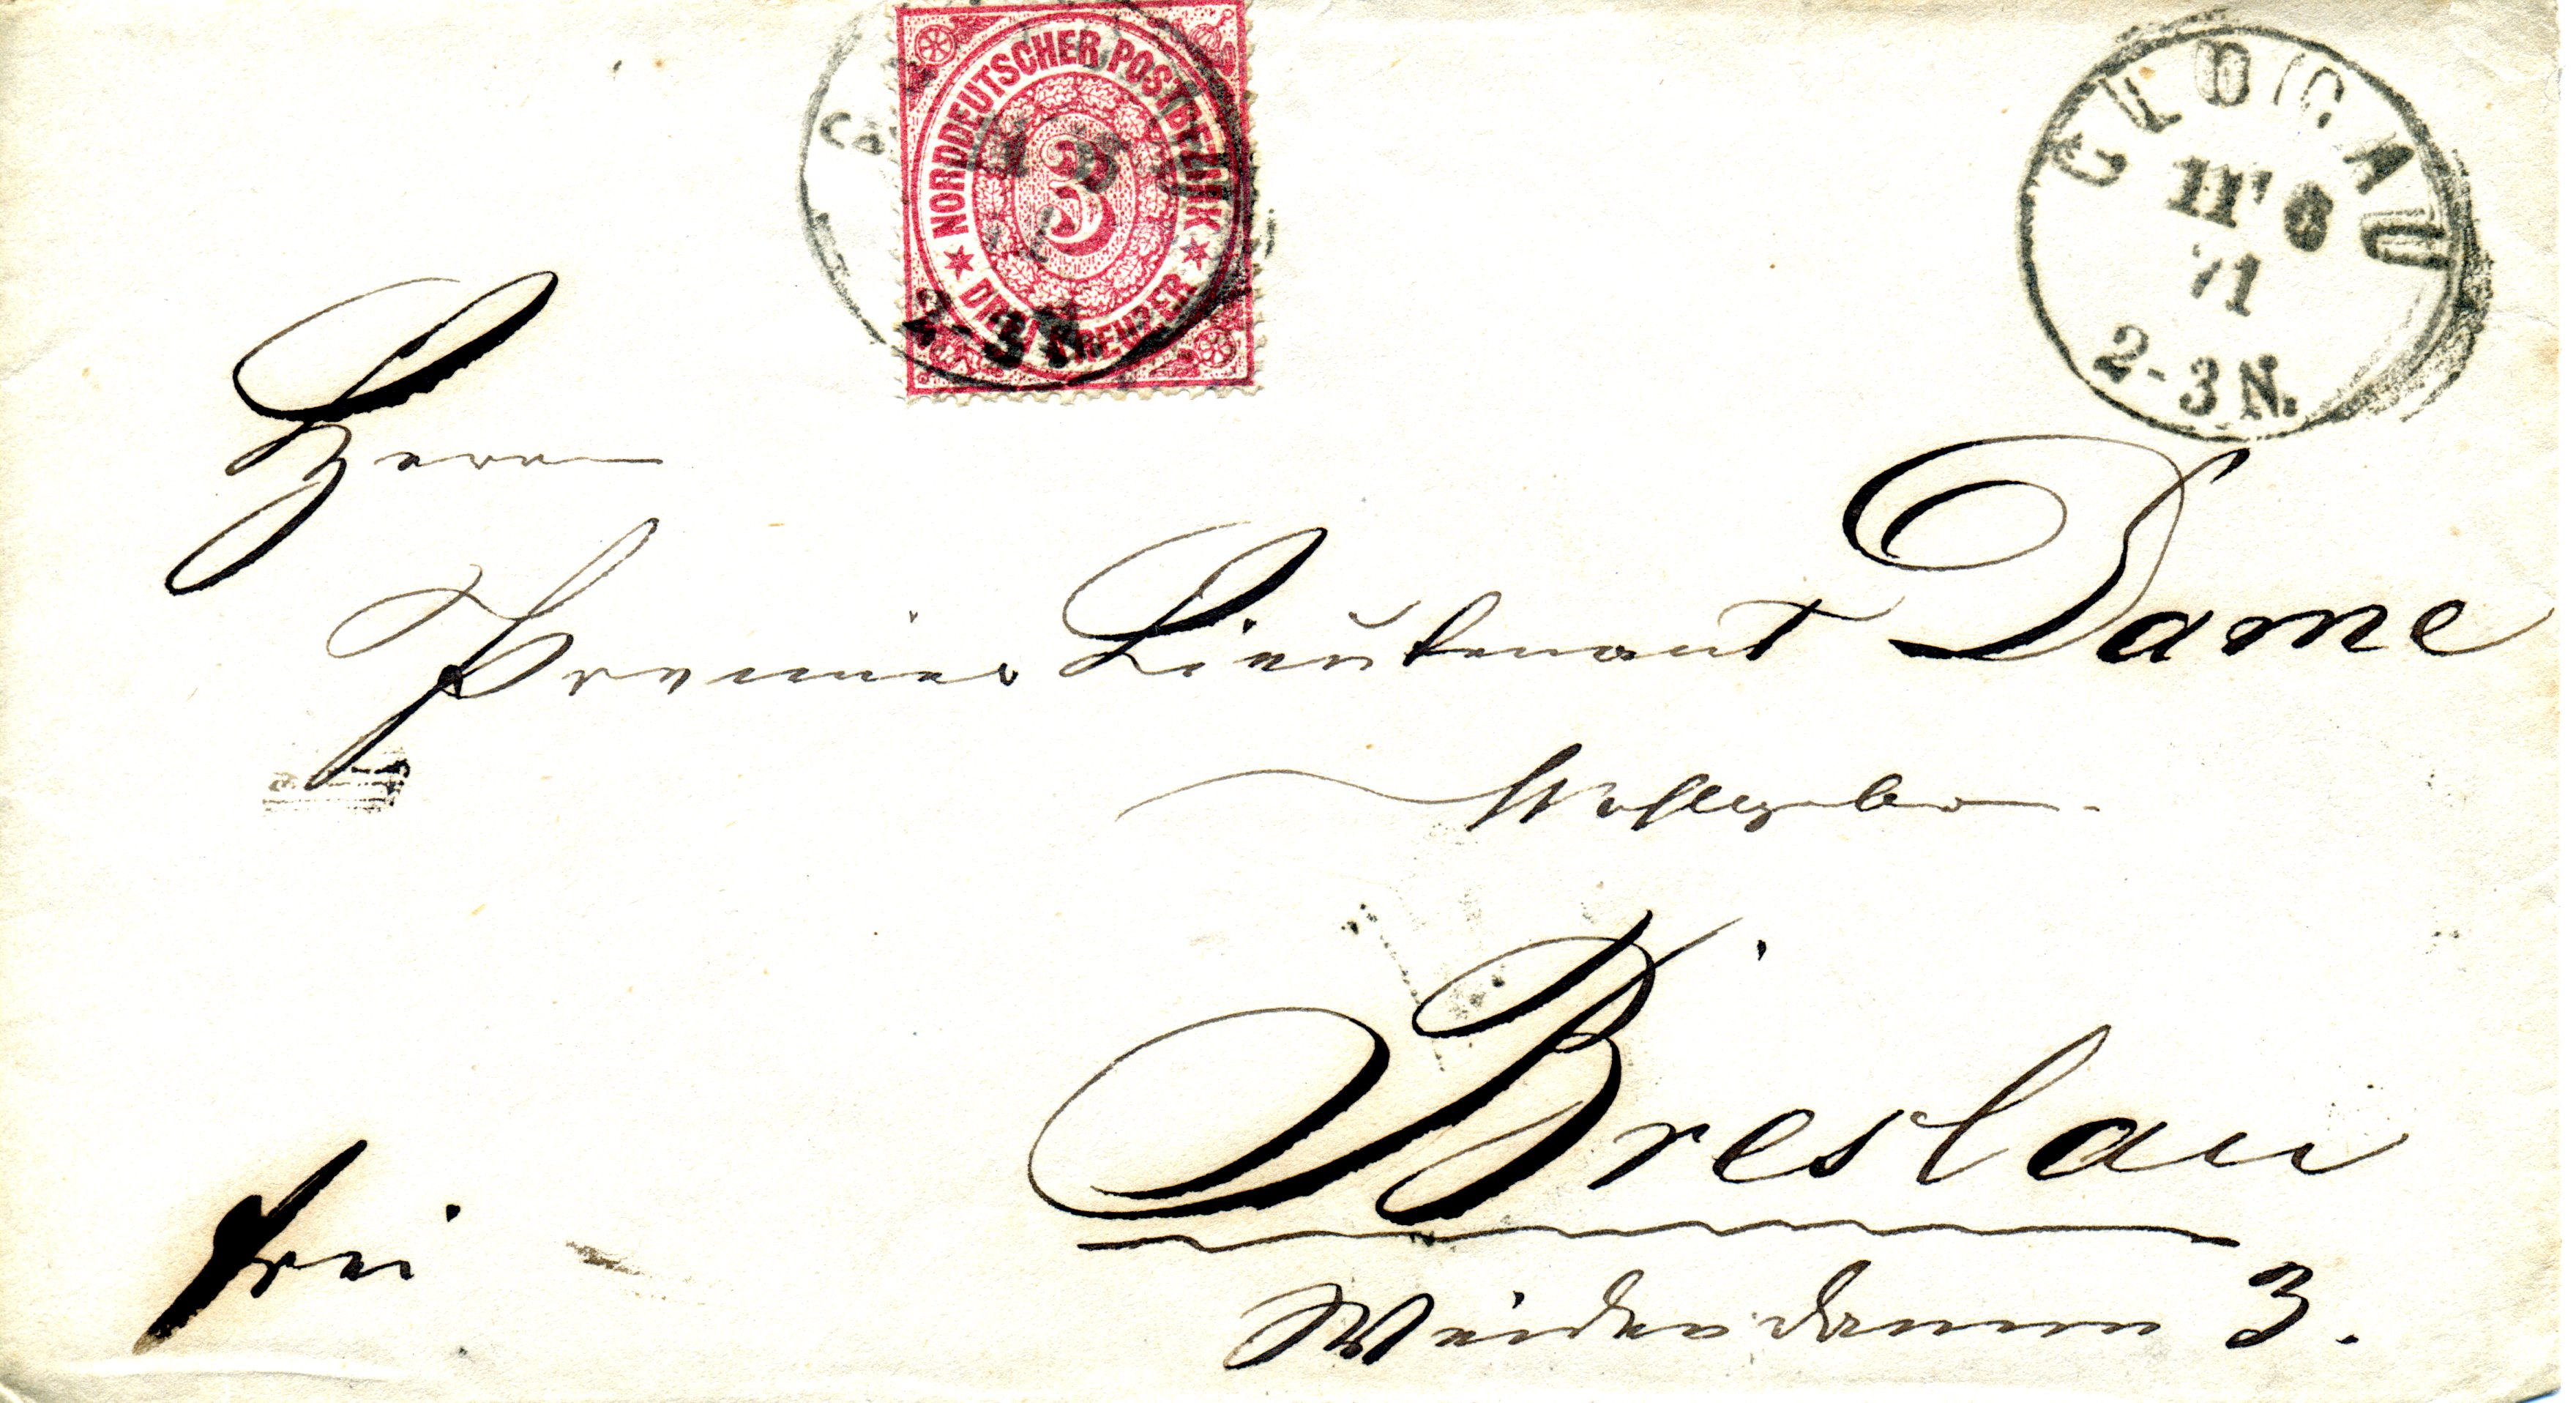 NORDDEUTSCHER POSTBEZIRK
3
DREI KREUZER
2-3N
GLOGAU
11 6
71
2-3N.
Herrn
Premier Lieutenant Dame
Wohlgeboren.
Breslau
frei
Weidendamm 3.